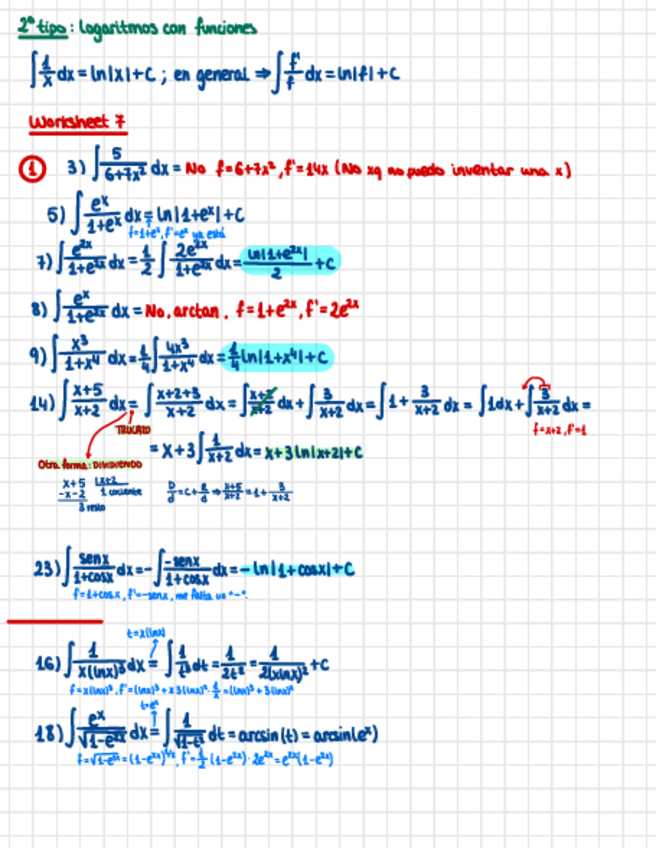 2º tipo: Logaritmos con funciones
∫ 1/x dx = ln|x|+C ; en general ⇒ ∫ f'/f dx = ln|f|+C
Worksheet 7
1 3) ∫ 5/(6+7x²) dx = No f=6+7x², f'=14x (No xq no puedo inventar una x)
5) ∫ eˣ/(1+eˣ) dx = ln|1+eˣ|+C
f=1+eˣ, f'=eˣ ya está
7) ∫ e²ˣ/(1+e²ˣ) dx = 1/2 ∫ 2e²ˣ/(1+e²ˣ) dx = ln|1+e²ˣ|/2 +C
8) ∫ eˣ/(1+e²ˣ) dx = No, arctan. f=1+e²ˣ, f'=2e²ˣ
9) ∫ x³/(1+x⁴) dx = 1/4 ∫ 4x³/(1+x⁴) dx = 1/4 ln|1+x⁴|+C
14) ∫ (x+5)/(x+2) dx = ∫ (x+2+3)/(x+2) dx = ∫ (x+2)/(x+2) dx + ∫ 3/(x+2) dx = ∫ 1 + 3/(x+2) dx = ∫ 1dx + ∫ 3/(x+2) dx =
f=x+2, f'=1
TRUCAZO
= x+3 ∫ 1/(x+2) dx = x+3 ln|x+2|+C
Otra forma: DIVIDIENDO
x+5 |x+2
-x-2 1 cociente
3 resto
D/d = c + R/d ⇒ (x+5)/(x+2) = 1 + 3/(x+2)
23) ∫ senx/(1+cosx) dx = - ∫ -senx/(1+cosx) dx = -ln|1+cosx|+C
f=1+cosx, f'=-senx, me falta un "-".
t=x(lnx)
16) ∫ 1/(x(lnx)³) dx = ∫ 1/t³ dt = 1/2t² = 1/2(xlnx)² +C
f=x(lnx)³, f'=(lnx)³+x3(lnx)²·1/x=(lnx)³+3(lnx)²
t=eˣ
18) ∫ eˣ/√(1-e²ˣ) dx = ∫ 1/√(1-t²) dt = arcsin(t) = arcsin(eˣ)